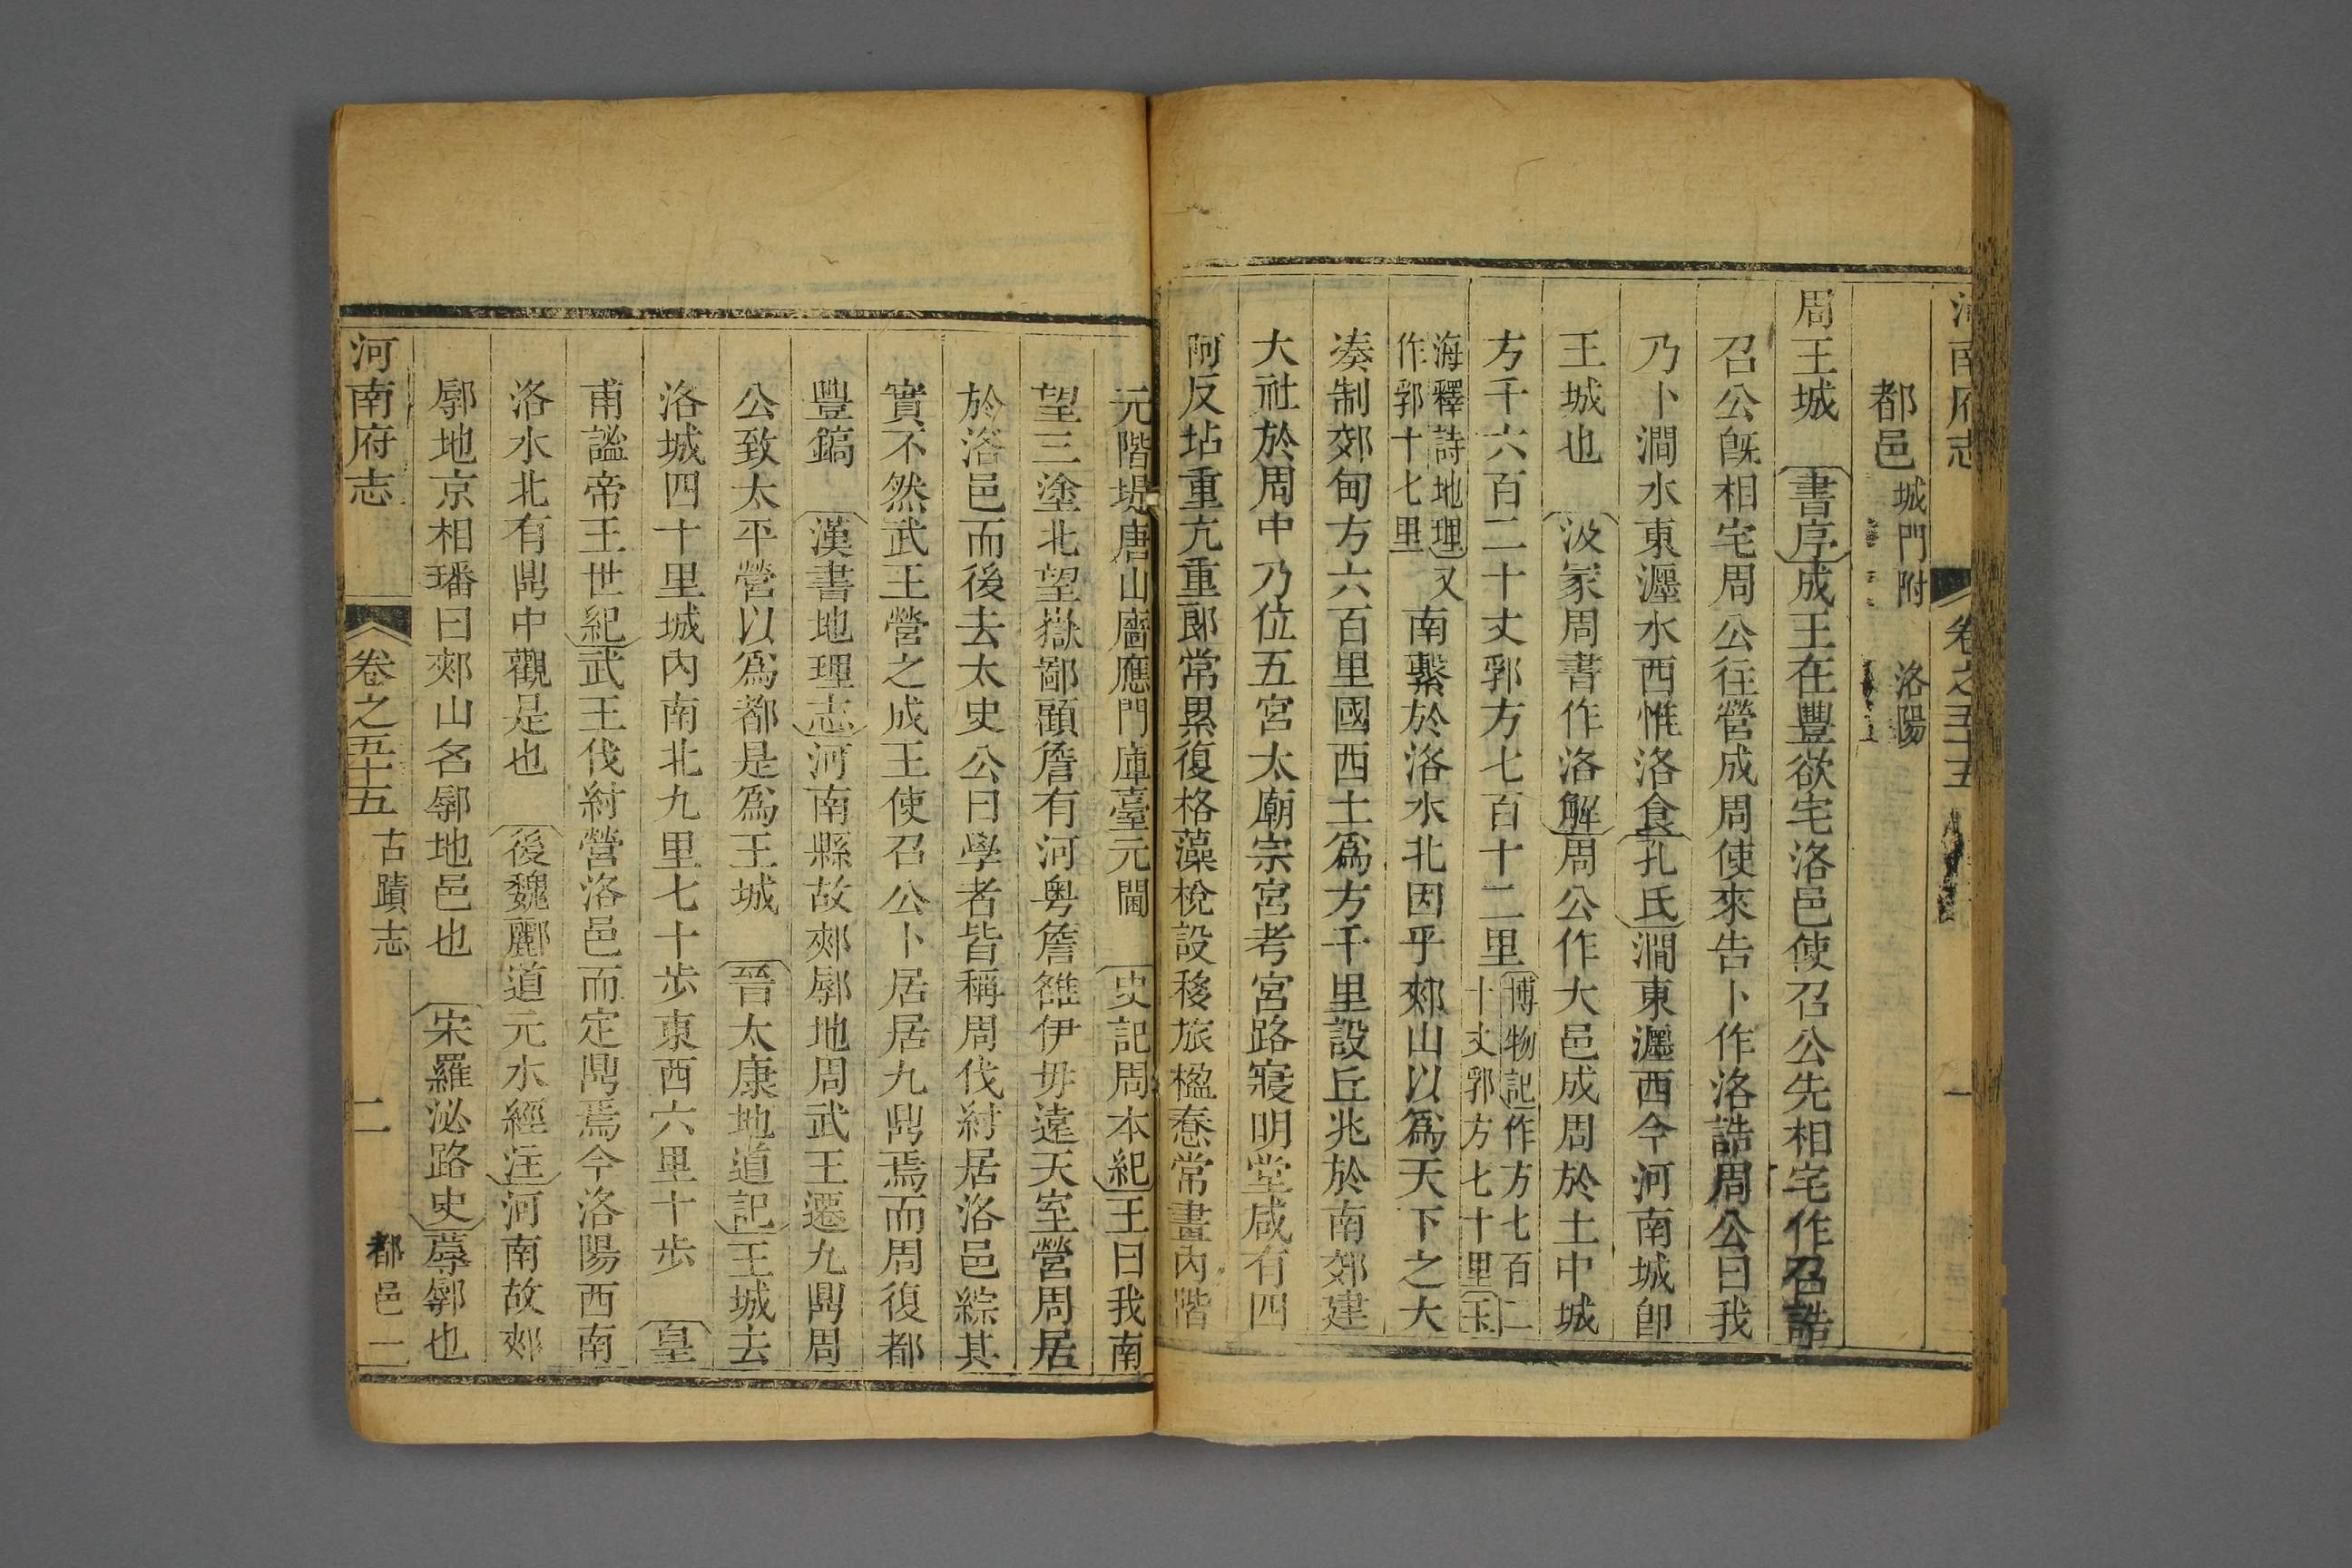 河南府志 卷之五十五 一
都邑 城門附 洛陽
周王城 書序成王在豐欲宅洛邑使召公先相宅作召誥
召公旣相宅周公往營成周使來告卜作洛誥周公曰我
乃卜澗水東瀍水西惟洛食孔氏澗東瀍西今河南城卽
王城也 汲冡周書作洛解周公作大邑成周於土中城
方千六百二十丈郛方七百十二里博物記作方七百二十丈郛方七十里玉
海釋詩地理作郛十七里又南繫於洛水北因乎郟山以爲天下之大
凑制郊甸方六百里國西土爲方千里設丘兆於南郊建
大社於周中乃位五宮太廟宗宮考宮路寢明堂咸有四
阿反坫重亢重郎常累復格藻梲設移旅楹惷常畫內階
元階堤唐山廧應門庫臺元閫 史記周本紀王曰我南
望三塗北望嶽鄙顧詹有河粤詹雒伊毋遠天室營周居
於洛邑而後去太史公曰學者皆稱周伐紂居洛邑綜其
實不然武王營之成王使召公卜居居九鼎焉而周復都
豐鎬 漢書地理志河南縣故郟鄏地周武王遷九鼎周
公致太平營以爲都是爲王城 晉太康地道記王城去
洛城四十里城內南北九里七十步東西六里十步 皇
甫謐帝王世紀武王伐紂營洛邑而定鼎焉今洛陽西南
洛水北有鼎中觀是也 後魏酈道元水經注河南故郟
鄏地京相璠曰郟山名鄏地邑也 宋羅泌路史蓐鄏也
河南府志 卷之五十五 古蹟志 都邑 二